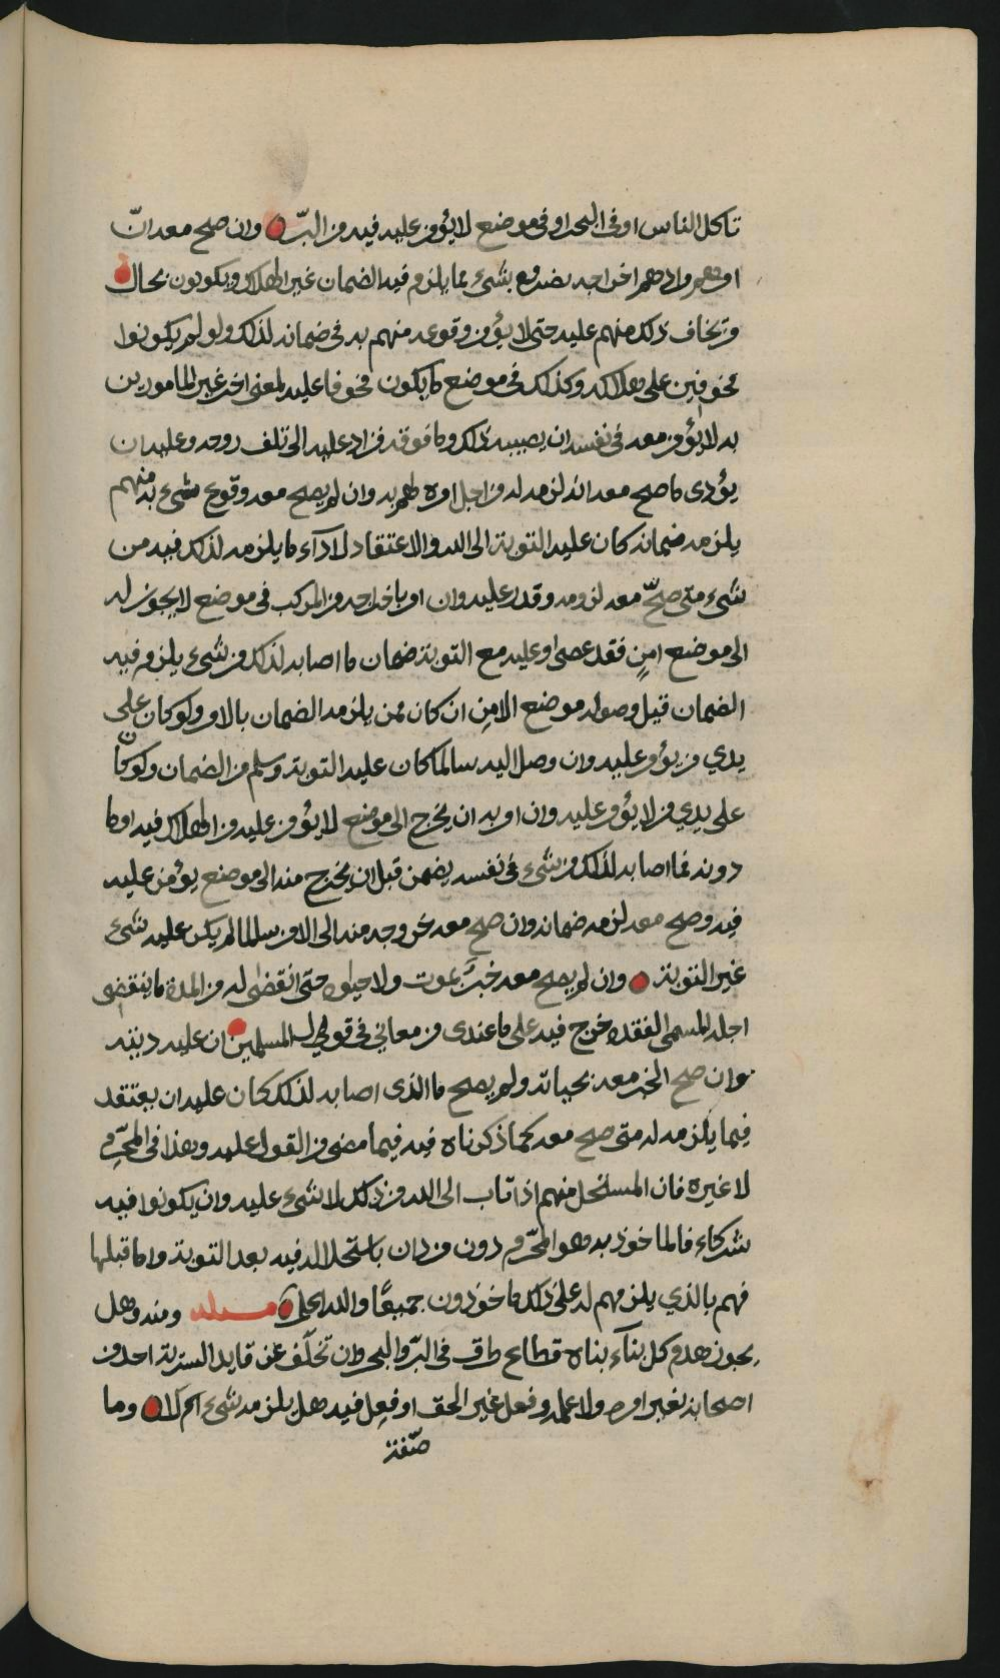 تاكل الناس او في البحر او في موضع لا يؤمن عليه فيه من البرّ وان صح معه انّ
او اخراجه بشيء مما يلزم فيه الضمان غير الهلاك ويكونون بحال
ويخاف ذلك منهم عليه حتى لا يؤمن وقوعه منهم به في ضمانه لذلك ولو لم يكونوا
مخوفين على هلاكه وكذلك في موضع ما يكون مخوفا عليه لمعنى اخر غير المامورين
به لا يؤمن معه في نفسه ان يصيبه ذلك وما فوقه فزاد عليه الى تلف روحه وعليه ان
يؤدى ما صح معه انه لزمه له من اجل امره لهم به وان لم يصح معه وقوع شيء به منهم
يلزمه ضمانه كان عليه التوبة الى الله والاعتقاد لاداء ما يلزمه لذلك فيه من
شيء متى صحّ معه لزومه وقدر عليه وان امر باخراجه من المركب في موضع لا يجوز له
الى موضع امنٍ فقد عصى وعليه مع التوبة ضمان ما اصابه لذلك من شيء يلزم فيه
الضمان قبل وصوله موضع الامن ان كان ممن يلزمه الضمان بالامر ولو كان على
يدي من يؤمن عليه وان وصل اليه سالما كان عليه التوبة وسلم من الضمان ولو كان
على يدي من لا يؤمن عليه وان امر به ان يخرج الى موضع لا يؤمن عليه من الهلاك فيه او ما
دونه فما اصابه لذلك من شيء في نفسه يضمن قبل ان يخرج منه الى موضع يؤمن عليه
فيه وصح معه لزمه ضمانه وان صح معه خروجه منه الى الامن سالما لم يكن عليه شيء
غير التوبة وان لم يصح معه خبرٌ بموت ولا حيوة حتى انقضى له من المدة ما ينقضي
اجله المسمى لفقده خرج فيه على ما عندى من معاني في قول المسلمين ان عليه ديته
وان صح الخبر معه بحياته ولم يصح ما الذى اصابه لذلك كان عليه ان يعتقد
فيما يلزمه له متى صح معه كما ذكرناه فيه فيما مضى من القول عليه وهذا في المحرّم
لا غيره فان المستحل منهم اذا تاب الى الله من ذلك لا شيء عليه وان يكونوا فيه
شركاء فالماخوذ به هو المحرّم دون من دان باستحلاله فيه بعد التوبة واما قبلها
فهم بالذي يلزمهم له على ذلك ماخوذون جميعًا والله اعلم مسئلة ومنه وهل
يجوز هدم كل بناء بناه قطاع طرق في البرّ والبحر وان تخلّف عن قايد السرية احد من
اصحابه بغير امره ولا علمه وفعل غير الحق او فعل فيه هل يلزمه شيء ام لا وما
صفة